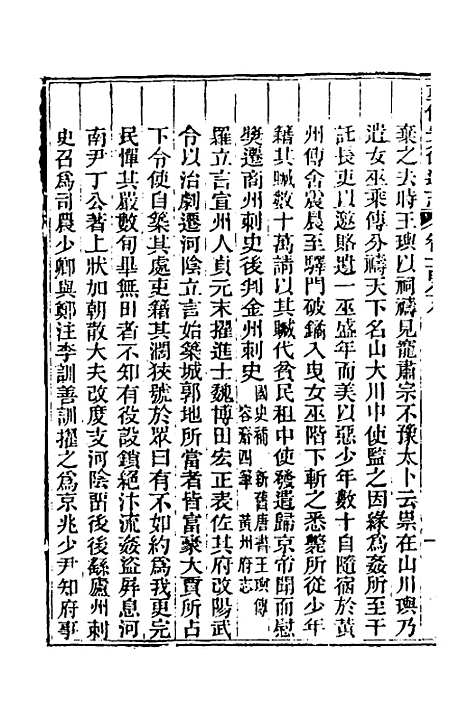 棄之夫時王璵以祠禱見寵肅宗不豫太卜云祟在山川璵乃
遣女巫乘傳分禱天下名山大川中使監之因緣為姦所至干
託長吏以邀賂遺一巫盛年而美以惡少年數十自隨宿於黃
州傳舍震晨至驛門破鐍入曳女巫階下斬之悉斃所從少年
籍其贓數十萬請以其贓代貧民租中使發遣歸京帝聞而慰
獎遷商州刺史後判金州刺史國史補 新舊唐書王璵傳
容齋四筆 黃州府志
羅立言宣州人貞元末擢進士魏博田宏正表佐其府改陽武
令以治劇遷河陰立言始築城郭地所當者皆富豪大賈所占
下令使自築其處吏籍其濶狹號於眾曰有不如約為我更完
民憚其嚴數旬畢無田者不知有役設鎖絕汴流姦盜屏息河
南尹丁公著上狀加朝散大夫改度支河陰畱後後繇廬州刺
史召為司農少卿與鄭注李訓善訓擢之為京兆少尹知府事